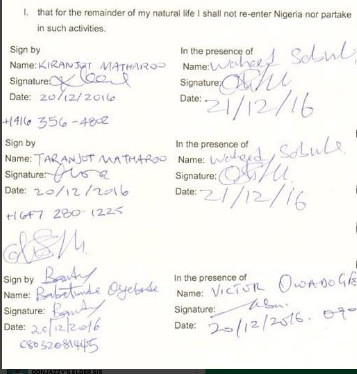 I. that for the remainder of my natural life I shall not re-enter Nigeria nor partake
in such activities.
Sign by
Name: KIRANJOT MATHAROO
Signature:
Date: 20/12/2016
+1416 356-4802
In the presence of
Name: Waheed Sobule
Signature:
Date: 21/12/16
Sign by
Name: TARANJOT MATHAROO
Signature:
Date: 20/12/2016
+1647 280-1225
In the presence of
Name: Waheed Sobule
Signature:
Date: 21/12/16
Sign by
Name: Babatunde Oyebode
Signature:
Date: 20/12/2016
08032081445
In the presence of
Name: VICTOR
Signature:
Date: 20/12/2016.